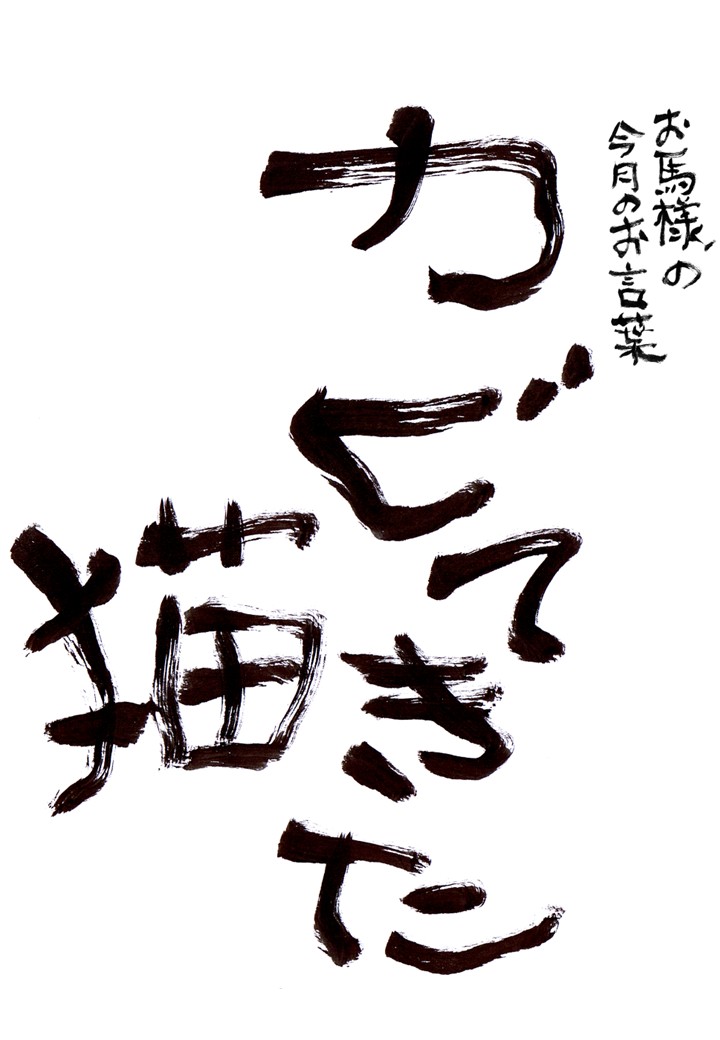 お馬様の
今月のお言葉
カビてきた
猫